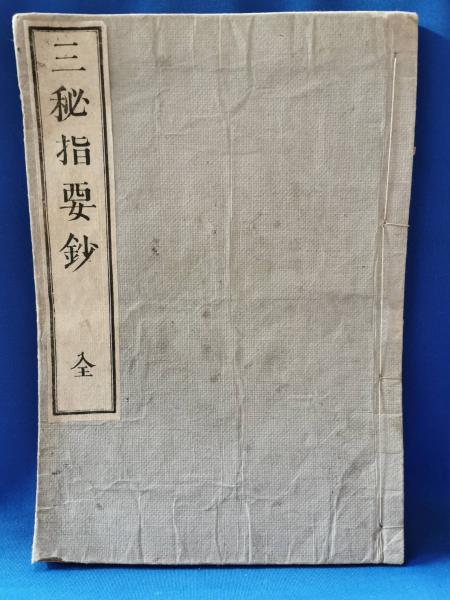 三秘指要鈔
全